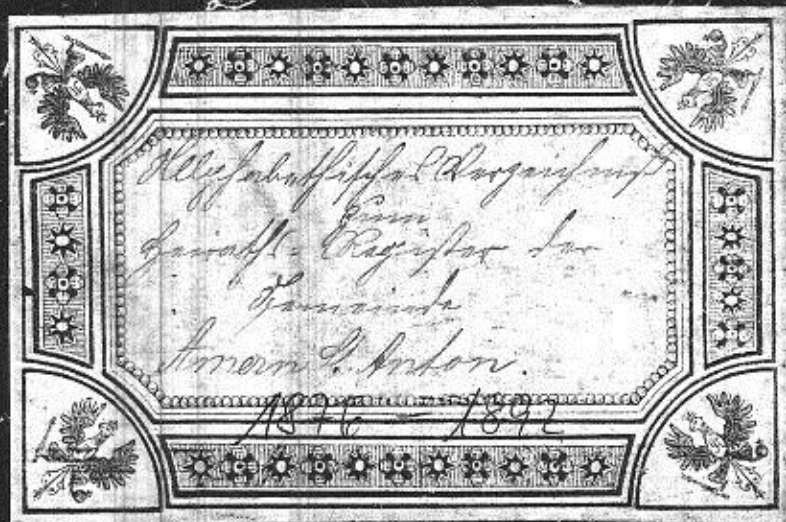 Alphabethisches Verzeichniß
zum
Heiraths-Register der
Gemeinde
Amern St. Anton.
1876 – 1892